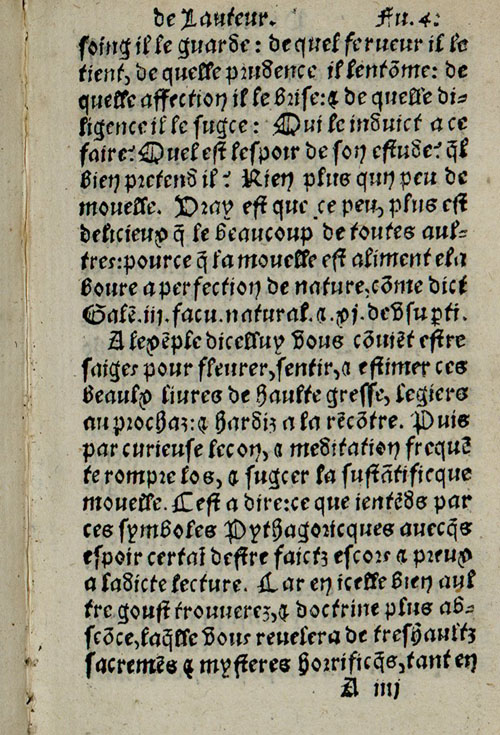 de Lauteur. Fu. 4.
soing il le guarde: de quel ferueur il le
tient, de quelle prudence il lentõme: de
quelle affection il le brise: & de quelle di-
ligence il le sugce: Qui le induict a ce
faire? Quel est lespoir de son estude? q̃l
bien pretend il? Rien plus qun peu de
mouelle. Vray est que ce peu, plus est
delicieux q̃ le beaucoup de toutes aul-
tres: pource q̃ la mouelle est aliment ela
boure a perfection de nature, cõme dict
Galẽ. iii. facu. natural. &. xj. de vsu pti.
A lexẽple dicelluy vous cõuiẽt estre
saiges pour fleurer, sentir, & estimer ces
beaulx liures de haulte gresse, legiers
au prochaz: & hardiz a la rẽcõtre. Puis
par curieuse lecon, & meditation frequẽ
te rompre los, & sugcer la sustãtificque
mouelle. Cest a dire: ce que ientẽds par
ces symboles Pythagoricques auecq̃s
espoir certaĩ destre faictz escors & preux
a ladicte lecture. Car en icelle bien aul
tre goust trouuerez, & doctrine plus ab-
scõce, laq̃lle vous reuelera de treshaultz
sacremẽs & mysteres horrificq̃s, tant en
A iiij